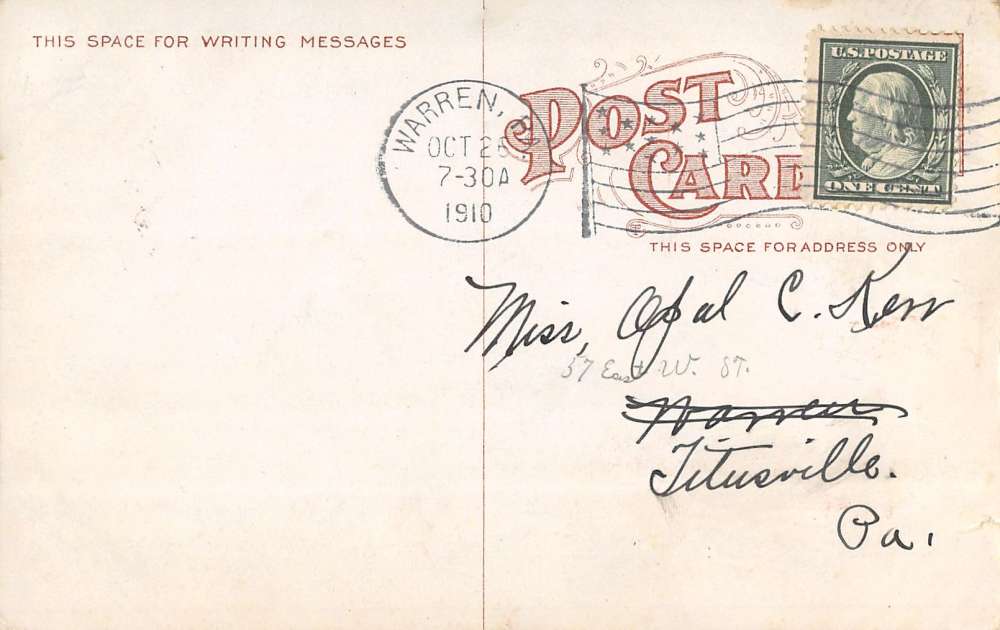 THIS SPACE FOR WRITING MESSAGES
WARREN, PA.
OCT 26
7-30A
1910
POST
CARD
U.S. POSTAGE
ONE CENT
THIS SPACE FOR ADDRESS ONLY
Miss, Opal C. Kerr
57 East W. ST.
Warren
Titusville.
Pa.